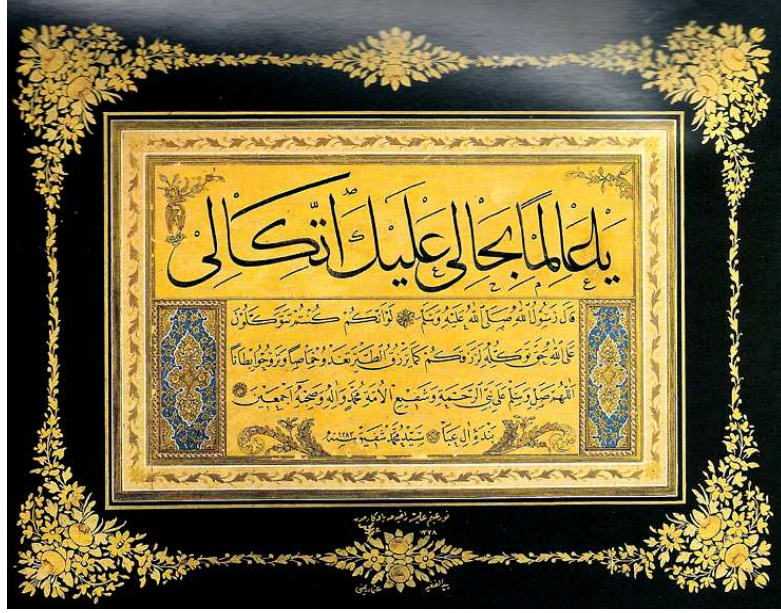 يَا عَالِمًا بِحَالِي عَلَيْكَ اتِّكَالِي
قَالَ رَسُولُ اللهِ صَلَّى اللهُ عَلَيْهِ وَسَلَّمَ لَوْ اَنَّكُمْ كُنْتُمْ تَتَوَكَّلُونَ
عَلَى اللهِ حَقَّ تَوَكُّلِهِ لَرَزَقَكُمْ كَمَا يَرْزُقُ الطَّيْرَ تَغْدُو خِمَاصًا وَتَرُوحُ بِطَانًا
اَللّٰهُمَّ صَلِّ وَسَلِّمْ عَلَى نَبِيِّ الرَّحْمَةِ وَشَفِيعِ الْاُمَّةِ مُحَمَّدٍ وَاٰلِهِ وَصَحْبِهِ اَجْمَعِينَ
بندهٔ اٰل عبا سيّد محمّد شفيق سنه ١٢٨٢